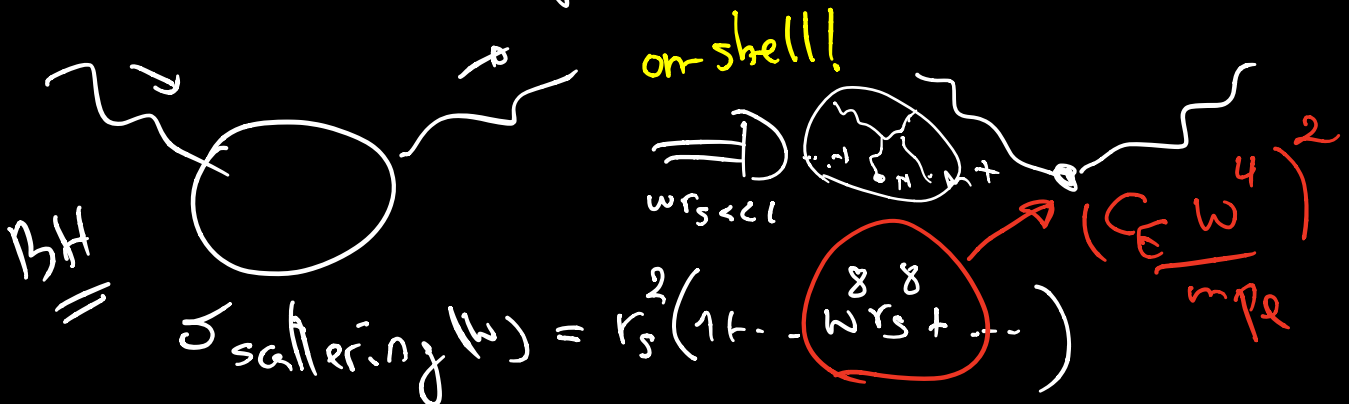 on-shell!
BH
wrs<<1
... M M +
(C_E w^4/mpl)^2
σ scattering (w) = r_s^2 (1+ ... w^8 r_s^8 + ...)